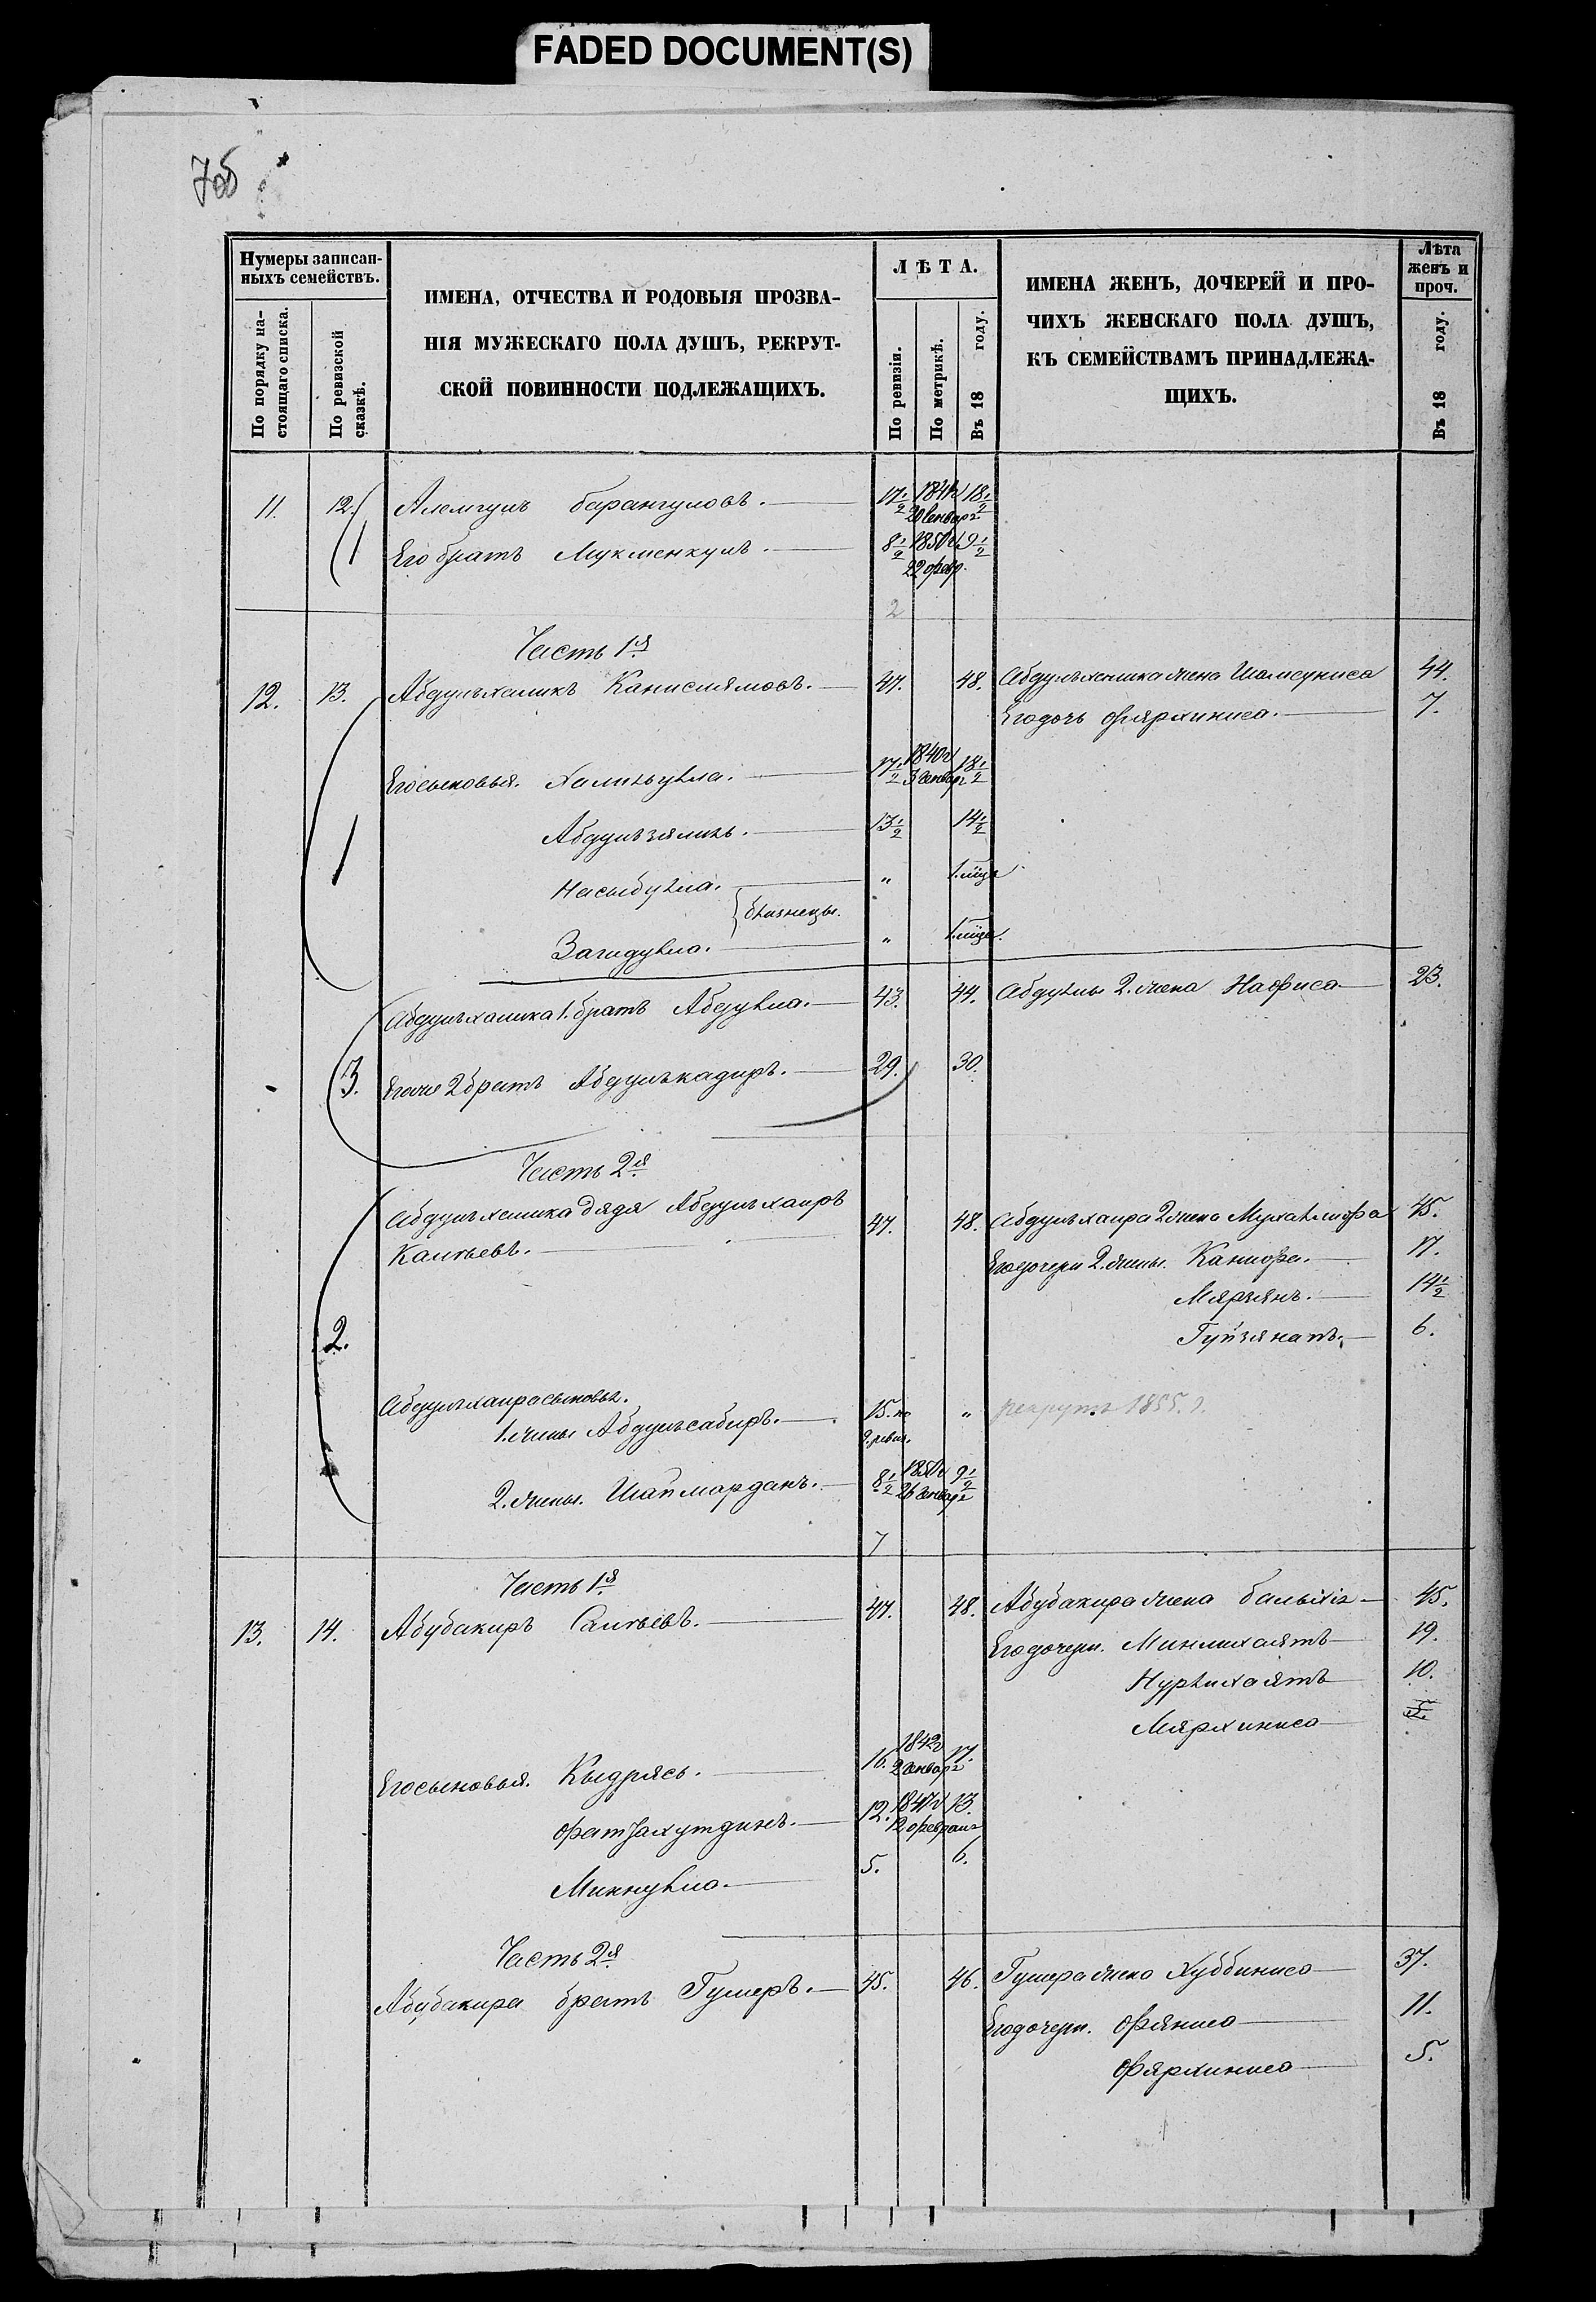 FADED DOCUMENT(S)
Нумеры записан-
ныхъ семействъ.
По порядку на-
стоящаго списка.
По ревизской
сказкѣ.
ИМЕНА, ОТЧЕСТВА И РОДОВЫЯ ПРОЗВА-
НІЯ МУЖЕСКАГО ПОЛА ДУШЪ, РЕКРУТ-
СКОЙ ПОВИННОСТИ ПОДЛЕЖАЩИХЪ.
ЛѢТА.
По ревизіи.
По метрикѣ.
Въ 18 году.
ИМЕНА ЖЕНЪ, ДОЧЕРЕЙ И ПРО-
ЧИХЪ ЖЕНСКАГО ПОЛА ДУШЪ,
КЪ СЕМЕЙСТВАМЪ ПРИНАДЛЕЖА-
ЩИХЪ.
Лѣта
женъ и
проч.
Въ 18 году.
11. 12. Алемгулъ Барангуловъ. 17½ 1841 18½
20 генваря
1 Его братъ Мукменкулъ. 8½ 1850 9½
22 февр.
2
Часть 1я
12. 13. Абдулъхаликъ Канислямовъ. 47. 48. Абдулъхалика жена Шамсуниса 44.
Его дочь Фярхиниса. 7.
Его сыновья. Халильулла. 17½ 1840 18½
3 генваря
Абдулъзялиль. 13½ 14½
1 Насыбулла. " 1.
близнецы.
Загидулла. " 1.
Абдулъхалика 1. братъ Абдулла. 43. 44. Абдуллы 2. жена Нафиса 23.
3. Егоже 2 братъ Абдулъкадиръ. 29. 30.
Часть 2я
Абдулъхалика дядя Абдулъхаиръ 47. 48. Абдулъхаира 2 жена 45.
Калтьевъ.
Его дочери 2. жены. Канифа. 17.
Мярзянъ. 14½
2. 6.
Абдулъхаира сыновья.
1. жены Абдулъсабиръ. 15. по " рекрутъ 1855.
9. ревиз.
2. жены. Шаймарданъ. 8½ 1850 9½
26 генваря
7
Часть 1я
13. 14. Абубакиръ 47. 48. Абубакира жена 45.
Его дочери. Минлихаятъ 19.
Нурлихаятъ 10.
Мярхиниса
Его сыновья. Кыдрясь. 16. 1842 17.
2 генваря
Фатхутдинъ. 12. 1847 13.
12 февраля
Миннулла. 5. 6.
Часть 2я
Абубакира братъ Гумеръ. 45. 46. Гумера жена Хуббиниса 37.
Его дочери. Фяниса 11.
Фярхиниса 5.